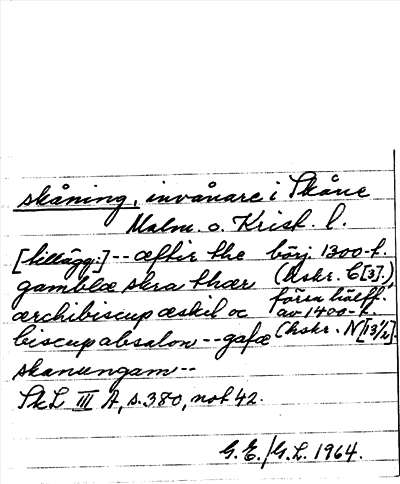 skåning, invånare i Skåne
Malm. o. Krist. l.
[tillägg:] -- æftir the börj. 1300-t.
gamblæ skra thær (hskr. C[3].),
ærchibiscup æskil oc förra hälft. av 1400-t.
biscup absalon -- gafæ (hskr. N[13½].
skanungam --
SkL III A, s. 380, not 42.
G.E./G.L. 1964.